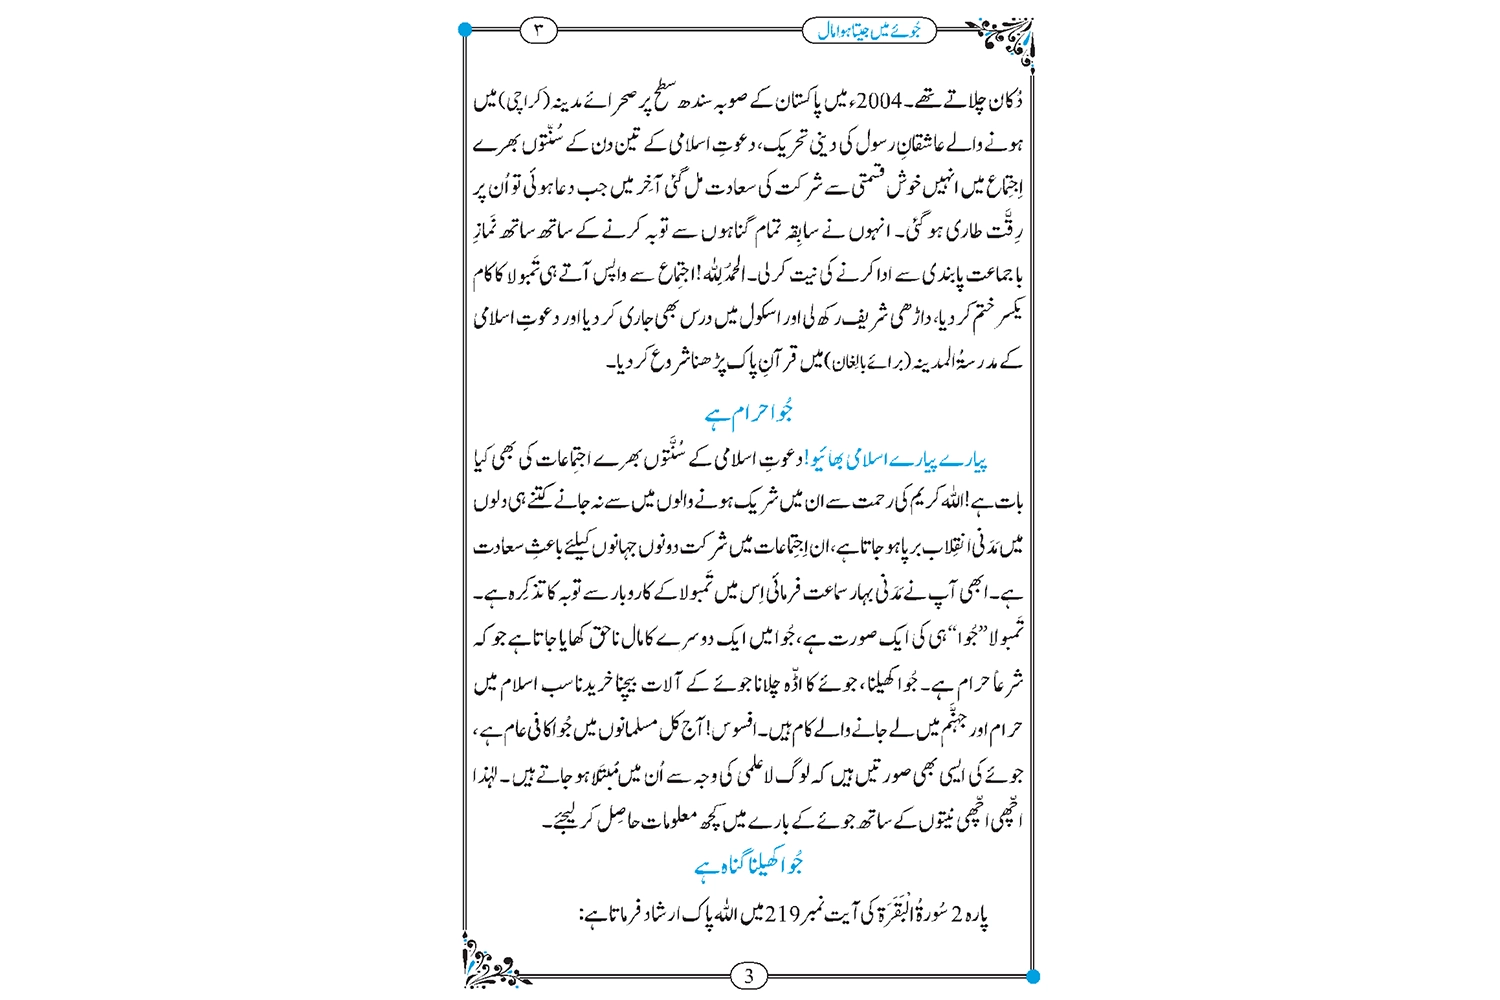 جُوئے میں جیتا ہوا مال
۳
دُکان چلاتے تھے۔ 2004ء میں پاکستان کے صوبہ سندھ سطح پر صحرائے مدینہ (کراچی) میں
ہونے والے عاشقانِ رسول کی دینی تحریک، دعوتِ اسلامی کے تین دن کے سُنّتوں بھرے
اِجتِماع میں انہیں خوش قسمتی سے شرکت کی سعادت مل گئی آخِر میں جب دعا ہوئی تو اُن پر
رِقّت طاری ہو گئی۔ انہوں نے سابِقہ تمام گناہوں سے توبہ کرنے کے ساتھ ساتھ نَمازِ
باجماعت پابندی سے ادا کرنے کی نیت کر لی۔ الحمدُ لِلّٰہ! اجتِماع سے واپس آتے ہی تَمبولا کا کام
یکسر ختم کر دیا، داڑھی شریف رکھ لی اور اسکول میں درس بھی جاری کر دیا اور دعوتِ اسلامی
کے مدرسۃُ المدینہ (برائے بالِغان) میں قرآنِ پاک پڑھنا شروع کر دیا۔
جُوا حرام ہے
پیارے پیارے اسلامی بھائیو! دعوتِ اسلامی کے سُنَّتوں بھرے اجتِماعات کی بھی کیا
بات ہے! اللہ کریم کی رحمت سے ان میں شریک ہونے والوں میں سے نہ جانے کتنے ہی دلوں
میں مَدَنی انقِلاب برپا ہو جاتا ہے، ان اِجتِماعات میں شرکت دونوں جہانوں کیلئے باعثِ سعادت
ہے۔ ابھی آپ نے مَدَنی بہار سماعت فرمائی اِس میں تَمبولا کے کاروبار سے توبہ کا تذکِرہ ہے۔
تَمبولا ”جُوا“ ہی کی ایک صورت ہے، جُوا میں ایک دوسرے کا مال ناحق کھایا جاتا ہے جو کہ
شرعاً حرام ہے۔ جُوا کھیلنا، جوئے کا اڈّہ چلانا جوئے کے آلات بیچنا خریدنا سب اسلام میں
حرام اور جہنَّم میں لے جانے والے کام ہیں۔ افسوس! آج کل مسلمانوں میں جُوا کافی عام ہے،
جوئے کی ایسی بھی صورتیں ہیں کہ لوگ لاعلمی کی وجہ سے اُن میں مُبتَلا ہو جاتے ہیں۔ لہٰذا
اچّھی اچّھی نیتوں کے ساتھ جوئے کے بارے میں کچھ معلومات حاصِل کر لیجئے۔
جُوا کھیلنا گناہ ہے
پارہ 2 سُورۃُ الْبَقَرَۃ کی آیت نمبر 219 میں اللہ پاک ارشاد فرماتا ہے:
3